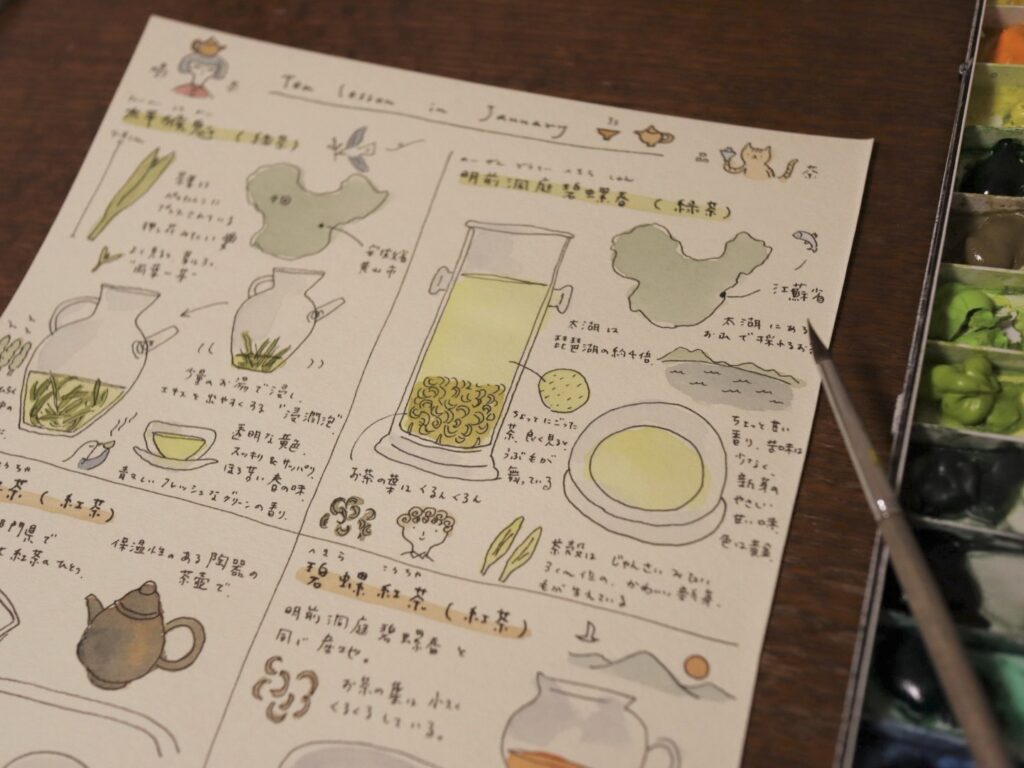 Tea Lesson in January
喝 茶
品 茶
太平猴魁 (緑茶)
中国
安徽省
黄山市
押し花みたい
よく見ると
少量のお湯で浸し、
エキスを出やすくする "浸潤泡"
透明な黄色
スッキリ&サッパリ
ほろ苦い春の味
青々しいフレッシュなグリーンの香り
明前洞庭碧螺春 (緑茶)
江蘇省
太湖にある
お山で採れるお
太湖は
琵琶湖の約4倍
ちょっとにごった
茶、良く見ると
うぶ毛が
舞っている
お茶の葉はくるんくるん
ちょっと甘い
香り、苦味は
少なく
新芽の
やさしい
甘い味
色は黄金
茶殻は じゃんさい みたい
3cm位の、かわいい
毛が生えている
茶 (紅茶)
門県で
紅茶のひとつ
保温性のある陶器の
茶壷で
へきら こうちゃ
碧螺紅茶 (紅茶)
明前洞庭碧螺春と
同じ産地。
お茶の葉は小さく
くるくるしている。